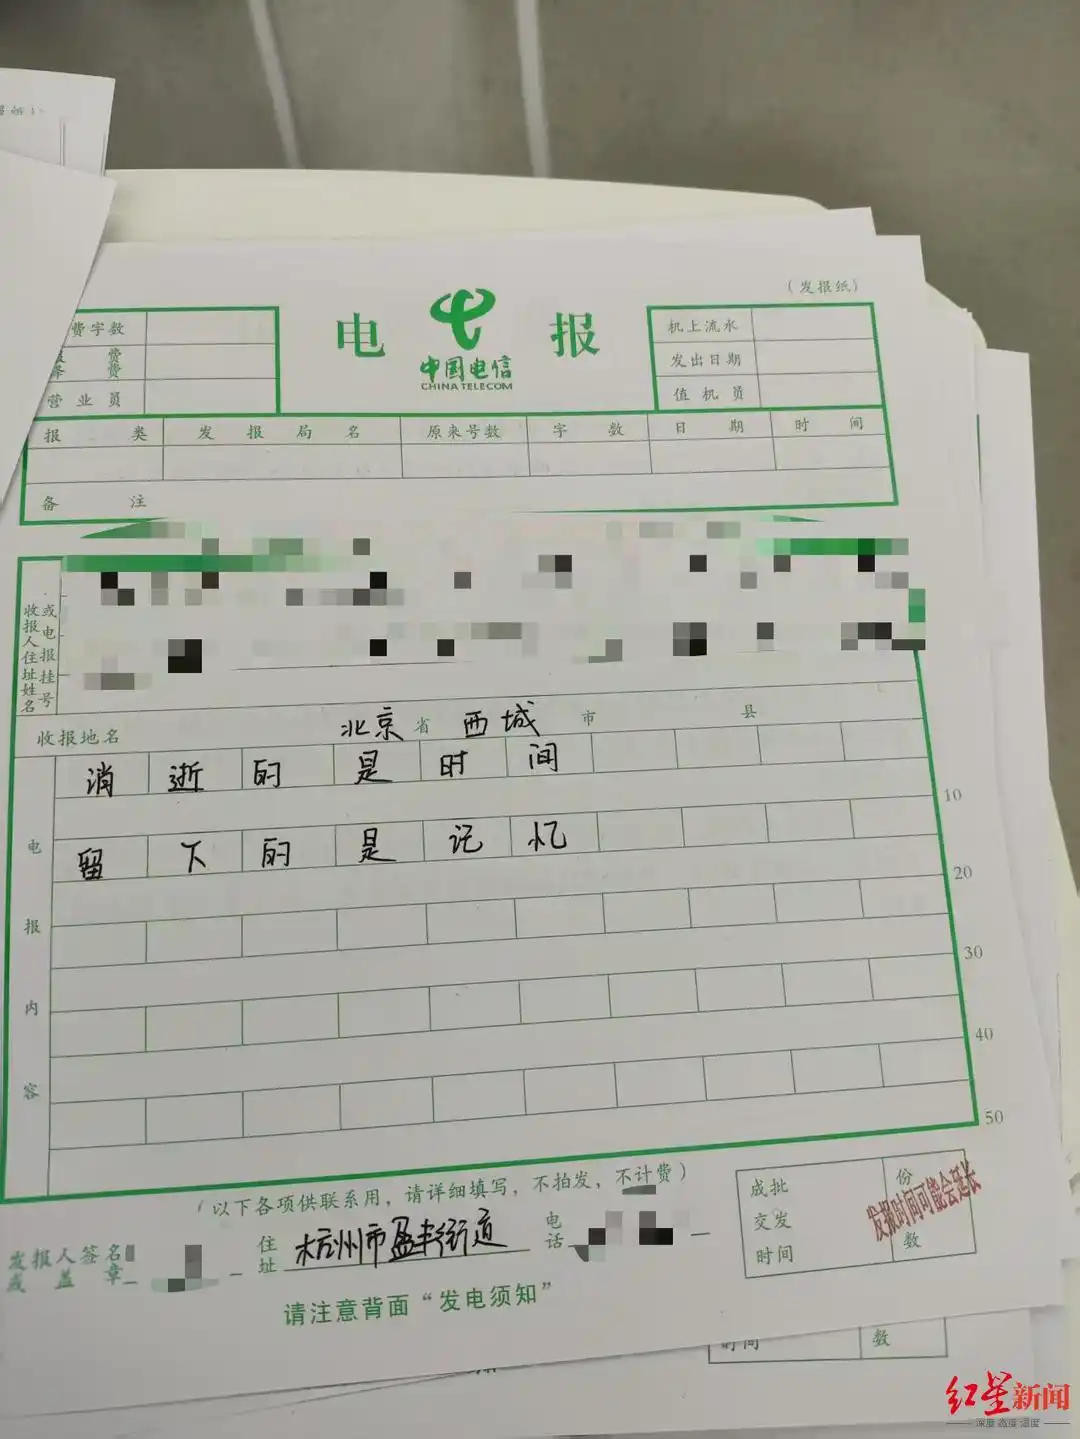 （发报纸）
费字数
费
费
营业员
电 报
中国电信
CHINA TELECOM
机上流水
发出日期
值机员
报类 发报局名 原来号数 字数 日期 时间
备注
收报人住址姓名
或电报挂号
收报地名 北京省 西城市 县
电报内容
消逝的是时间
10
留下的是记忆
20
30
40
50
（以下各项供联系用，请详细填写，不拍发，不计费）
发报人签名或盖章
住址 杭州市盈丰街道
电话
成批交发时间
份数
发报时间可能会延长
请注意背面“发电须知”
时间
数
红星新闻
深度 态度 温度